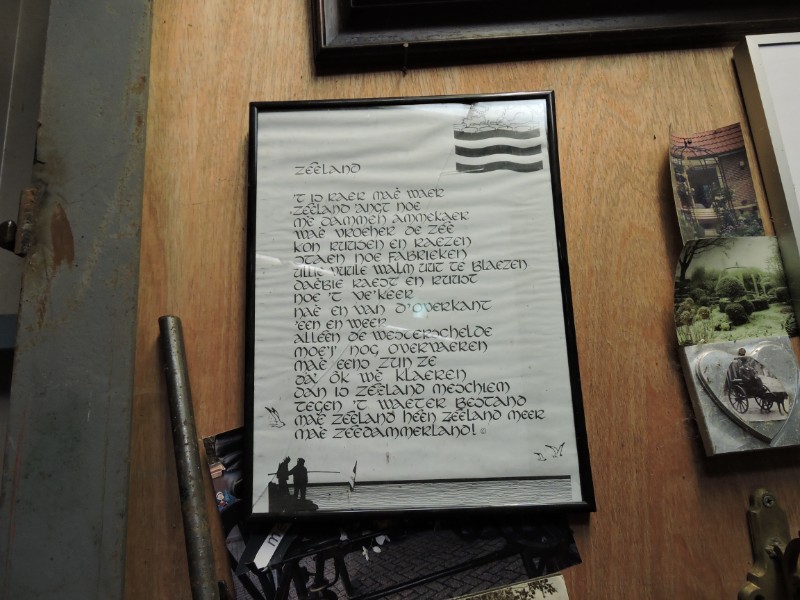 Zeêland
't is raer maè waer
Zeêland 'angt noe
mè dammen ammekaer
waè vroeher de zeê
kon ruusen en raezen
staen noe fabrieken
ulle vuule walm uut te blaezen
daèbie raest en ruust
noe 't ve'keer
naè en van d'overkant
'een en weer
alleên de Westerschelde
moe'j' nog overvaeren
maè eens zun ze
da' ôk wè klaeren
dan is Zeêland meschiem
tegen 't waeter bestand
maè Zeêland heên Zeêland meer
maè Zeêdammerland! ©